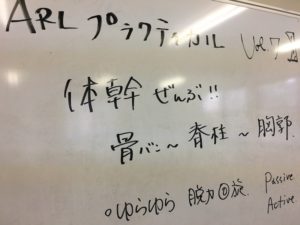 ARL プラクティカル Vol.7
体幹 ぜんぶ!!
骨バン〜脊柱〜胸郭
○ゆらゆら 脱力の旅 Passive
Active